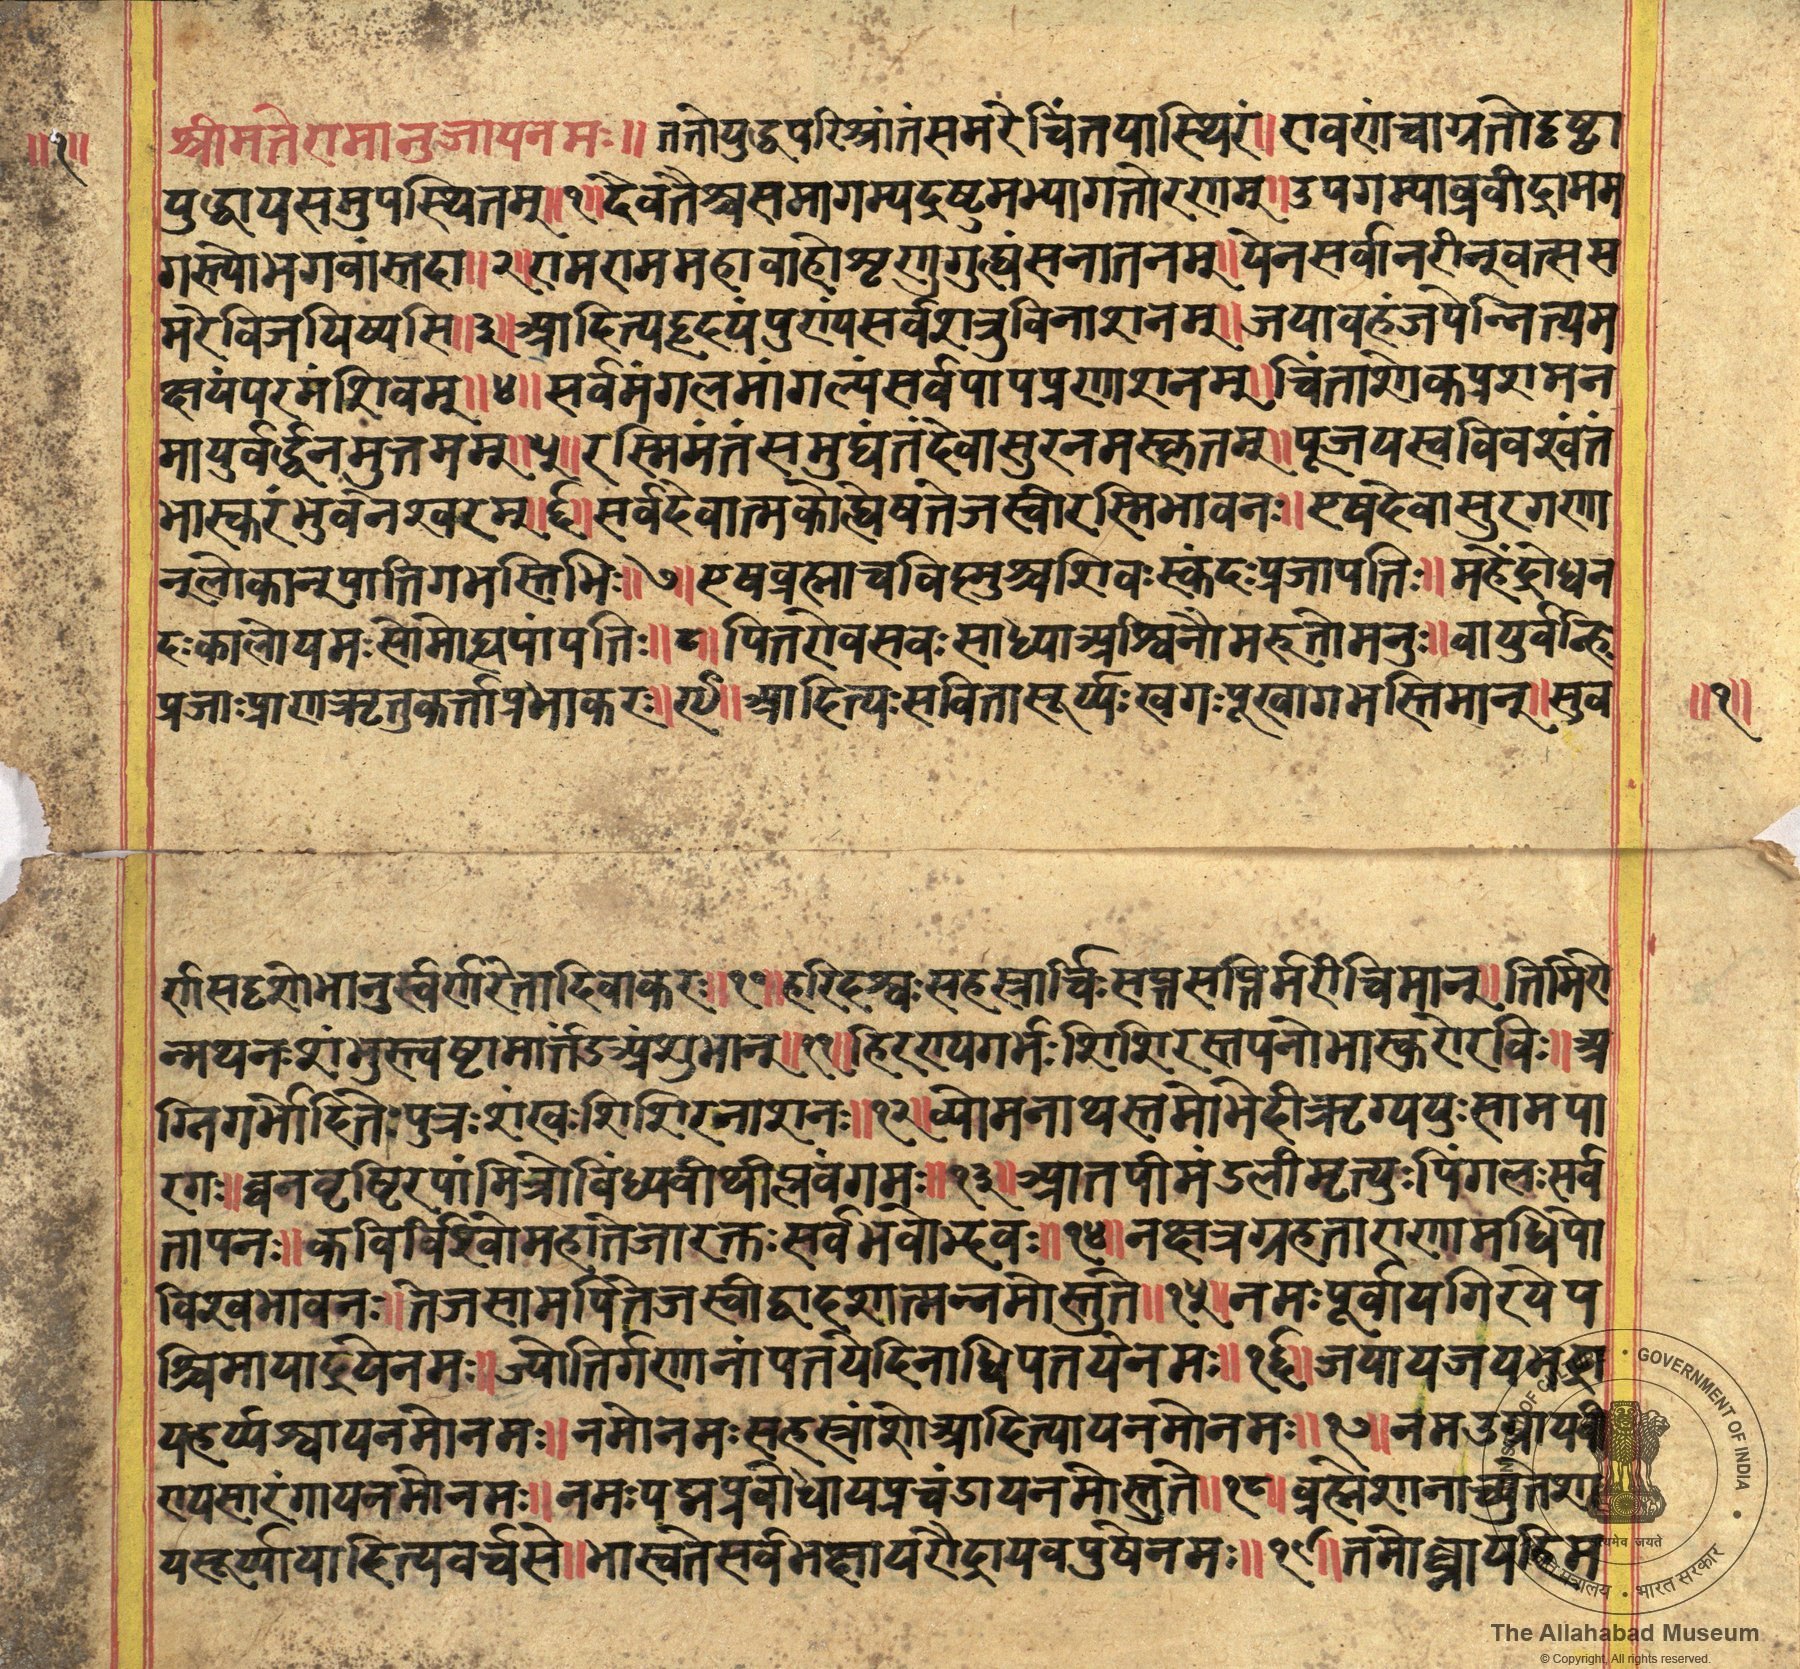 ॥१॥
श्रीमतेरामानुजायनमः॥ ततोयुद्धपरिश्रांतंसमरेचिंतयास्थिरं॥रावणंचाग्रतोदृष्ट्वा
युद्धायसमुपस्थितम्॥१॥दैवतैश्चसमागम्यद्रष्टुमभ्यागतोरणम्॥उपगम्याब्रवीद्रामम
गस्त्योभगवांस्तदा॥२॥रामराममहावाहोशृणुगुह्यंसनातनम्॥येनसर्वानरीन्वत्सस
मरेविजयिष्यसि॥३॥आदित्यहृदयंपुण्यंसर्वशत्रुविनाशनम्॥जयावहंजपेन्नित्यम
क्षयंपरमंशिवम्॥४॥सर्वमंगलमांगल्यंसर्वपापप्रणाशनम्॥चिंताशोकप्रशमन
मायुर्वर्द्धनमुत्तमंम्॥५॥रस्मिमंतंसमुद्यंतंदेवासुरनमस्कृतम्॥पूजयस्वविवश्वंतं
भास्करंभुवनेश्वरम्॥६॥सर्वदेवात्मकोह्येषतेजस्वीरस्मिभावनः॥एषदेवासुरगणा
न्लोकान्पातिगभस्तिभिः॥७॥एषव्रह्माचविह्मुश्चशिवःस्कंदःप्रजापतिः॥महेंद्रोधन
दःकालोयमःसोमोह्यपांपतिः॥८॥पितरोवसवःसाध्याअश्विनौमरुतोमनुः॥वायुर्वन्हिः
प्रजाःप्राणऋतुकर्त्ताप्रभाकरः॥९॥आदित्यःसवितासूर्य्यःखगःपूखागभस्तिमान्॥सुव
॥१॥
र्णसदृशोभानुर्स्वर्णरेतादिवाकरः॥१०॥हरिदश्वःसहस्त्रार्चिःसप्तसप्तिर्मरीचिमान्॥तिमिरो
न्मथनःशंभुस्त्वष्टामार्त्तंडअंशुमान्॥११॥हिरण्यगर्भःशिशिरस्तपनोभास्करोरविः॥अ
ग्निगर्भोदितेःपुत्रःशंखःशिशिरनाशनः॥१२॥व्योमनाथस्तमोभेदीऋग्ययुःसामपा
रगः॥घनवृष्टिरपांमित्रोविंध्यवीथीप्लवंगमः॥१३॥आतपीमंडलीमृत्युःपिंगलःसर्व
तापनः॥कविर्विश्वोमहातेजारक्तःसर्वभवोद्भवः॥१४॥नक्षत्रग्रहताराणामधिपो
विश्वभावनः॥तेजसामपितेजस्वीद्वादशात्मन्नमोस्तुते॥१५॥नमःपूर्वायगिरयेप
श्चिमायाद्रयेनमः॥ज्योतिर्गणानांपतयेदिनाधिपतयेनमः॥१६॥जयायजयभद्रा
यहर्य्यश्वायनमोनमः॥नमोनमःसहस्त्रांशोआदित्यायनमोनमः॥१७॥नमउग्रायवी
रायसारंगायनमोनमः॥नमःपद्मप्रवोधायप्रचंडायनमोस्तुते॥१८॥व्रह्मेशानाच्युतेशा
यसूर्य्यायादित्यवर्चसे॥भास्वतेसर्वभक्षायरौद्रायवपुषेनमः॥१९॥तमोघ्नायहिम
GOVERNMENT OF INDIA
सत्यमेव जयते
भारत सरकार
The Allahabad Museum
© Copyright, All rights reserved.